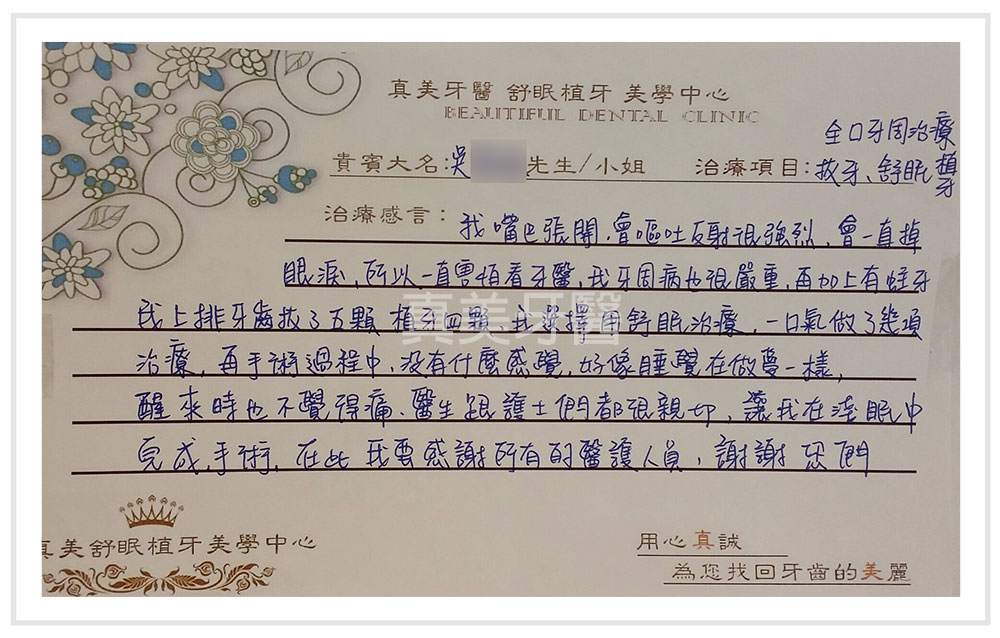 真美牙醫 舒眠植牙 美學中心
BEAUTIFUL DENTAL CLINIC
全口牙周治療
貴賓大名:吳 先生/小姐 治療項目:拔牙、舒眠植牙
治療感言:我嘴巴張開,會嘔吐反射很強烈,會一直掉
眼淚,所以一直害怕看牙醫,我牙周病也很嚴重,再加上有蛀牙
我上排牙齒拔了五顆 植牙四顆 我選擇用舒眠治療,一口氣做了幾項
治療,再手術過程中,沒有什麼感覺,好像睡覺在做夢一樣,
醒來時也不覺得痛、醫生跟護士們都很親切,讓我在淺眠中
完成手術,在此 我要感謝所有的醫護人員,謝謝您們
真美牙醫
真美舒眠植牙美學中心
用心真誠
為您找回牙齒的美麗